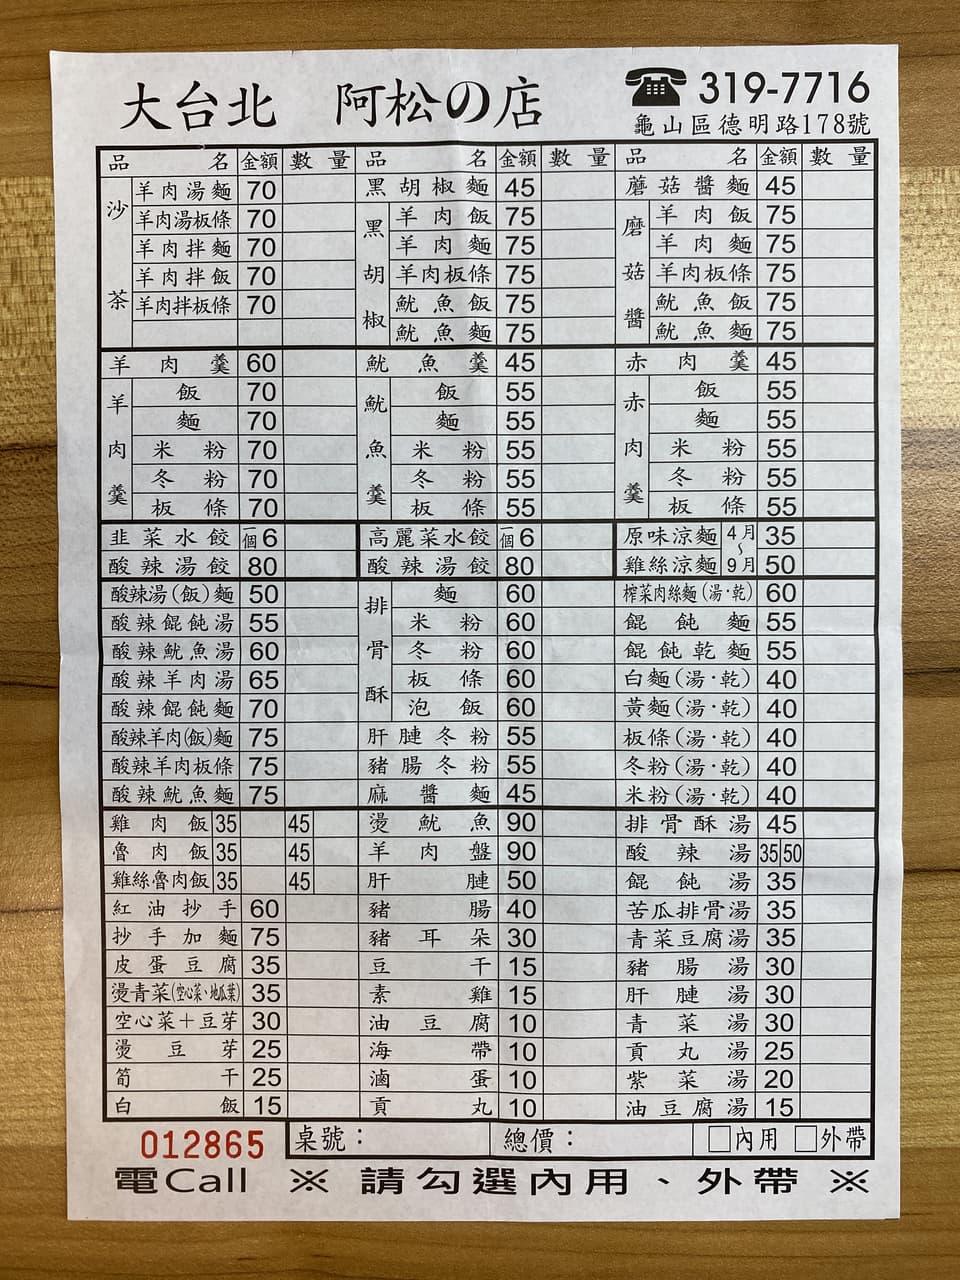 大台北 阿松の店 319-7716
龜山區德明路178號
品名 金額 數量 品名 金額 數量 品名 金額 數量
沙茶 羊肉湯麵 70 黑胡椒麵 45 蘑菇醬麵 45
羊肉湯板條 70 黑胡椒 羊肉飯 75 磨菇醬 羊肉飯 75
羊肉拌麵 70 羊肉麵 75 羊肉麵 75
羊肉拌飯 70 羊肉板條 75 羊肉板條 75
羊肉拌板條 70 魷魚飯 75 魷魚飯 75
魷魚麵 75 魷魚麵 75
羊肉羹 60 魷魚羹 45 赤肉羹 45
羊肉羹 飯 70 魷魚羹 飯 55 赤肉羹 飯 55
麵 70 麵 55 麵 55
米粉 70 米粉 55 米粉 55
冬粉 70 冬粉 55 冬粉 55
板條 70 板條 55 板條 55
韭菜水餃 一個6 高麗菜水餃 一個6 原味涼麵 4月~9月 35
酸辣湯餃 80 酸辣湯餃 80 雞絲涼麵 50
酸辣湯(飯)麵 50 排骨酥 麵 60 榨菜肉絲麵(湯·乾) 60
酸辣餛飩湯 55 米粉 60 餛飩麵 55
酸辣魷魚湯 60 冬粉 60 餛飩乾麵 55
酸辣羊肉湯 65 板條 60 白麵(湯·乾) 40
酸辣餛飩麵 70 泡飯 60 黃麵(湯·乾) 40
酸辣羊肉(飯)麵 75 肝腱冬粉 55 板條(湯·乾) 40
酸辣羊肉板條 75 豬腸冬粉 55 冬粉(湯·乾) 40
酸辣魷魚麵 75 麻醬麵 45 米粉(湯·乾) 40
雞肉飯 35 45 燙魷魚 90 排骨酥湯 45
魯肉飯 35 45 羊肉盤 90 酸辣湯 35 50
雞絲魯肉飯 35 45 肝腱 50 餛飩湯 35
紅油抄手 60 豬腸 40 苦瓜排骨湯 35
抄手加麵 75 豬耳朵 30 青菜豆腐湯 35
皮蛋豆腐 35 豆干 15 豬腸湯 30
燙青菜(空心菜、地瓜葉) 35 素雞 15 肝腱湯 30
空心菜+豆芽 30 油豆腐 10 青菜湯 30
燙豆芽 25 海帶 10 貢丸湯 25
筍干 25 滷蛋 10 紫菜湯 20
白飯 15 貢丸 10 油豆腐湯 15
012865 桌號： 總價： □內用 □外帶
電Call ※ 請勾選內用、外帶 ※